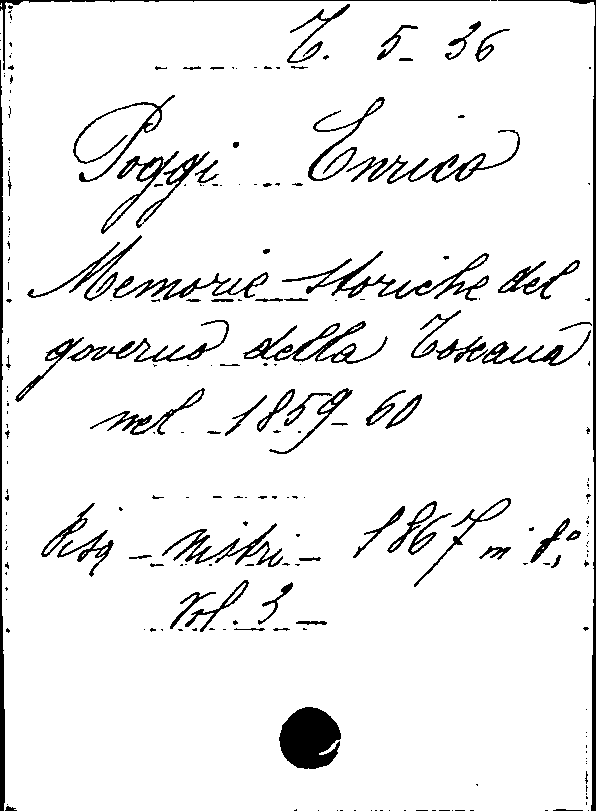 T. 5-36
Poggi Enrico
Memorie storiche del
governo della Toscana
nel 1859-60
Pisa - Nistri - 1867 in 8°
Vol. 3 -